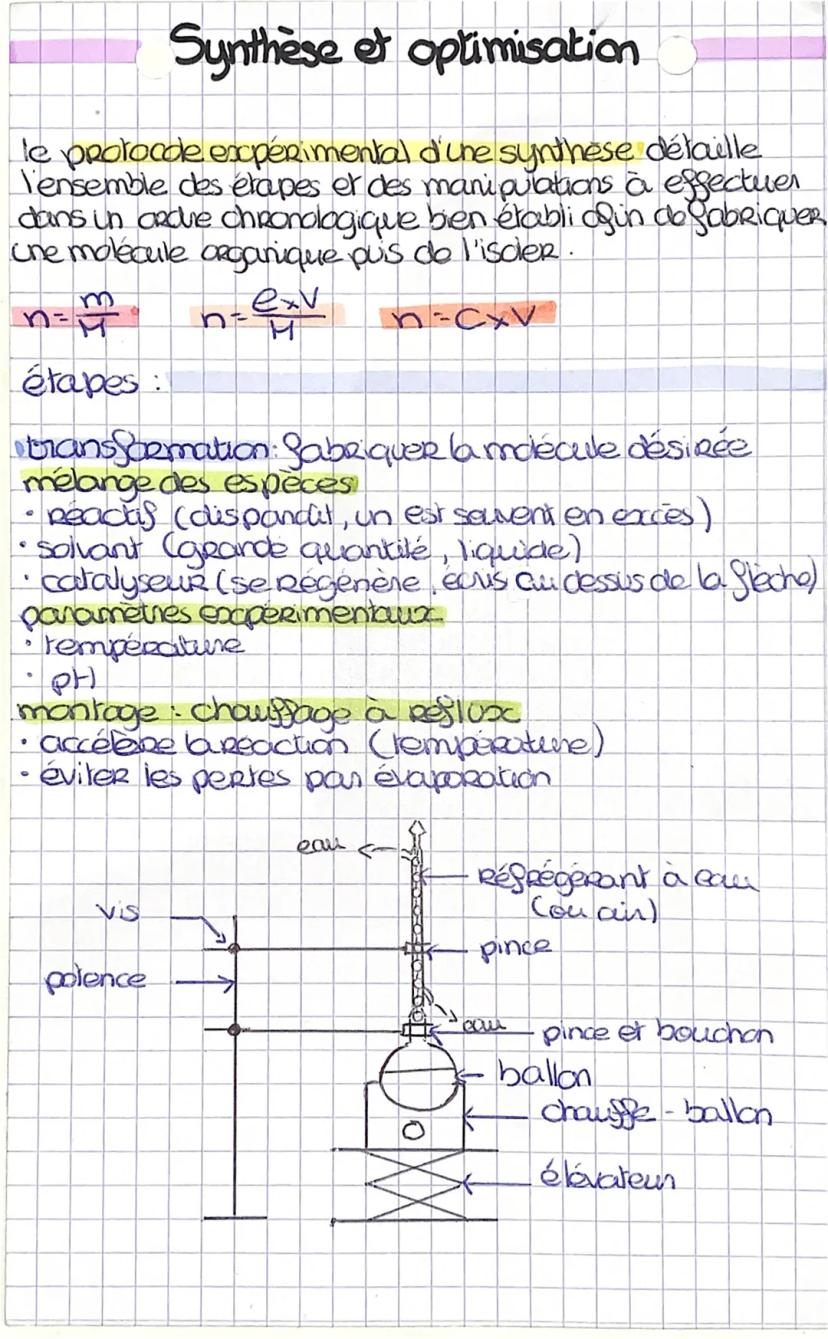 Synthèse et optimisation
le protocole expérimental d'une synthèse détaille
l'ensemble des étapes et des manipulations à effectuer
dans un ordre chronologique bien établi afin de fabriquer
une molécule organique puis de l'isoler.
n=m/M n=ρxV/M n=CxV
étapes :
transformation: fabriquer la molécule désirée
mélange des espèces
• réactif (disparaît, un est souvent en excès)
• solvant (grande quantité, liquide)
• catalyseur (se régénère, écris au dessus de la flèche)
paramètres expérimentaux
• température
• pH
montage : chauffage à reflux
• accélère la réaction (température)
• éviter les pertes par évaporation
eau
réfrégérant à eau
(ou air)
vis
pince
potence
eau
pince et bouchon
ballon
chauffe-ballon
élévateur